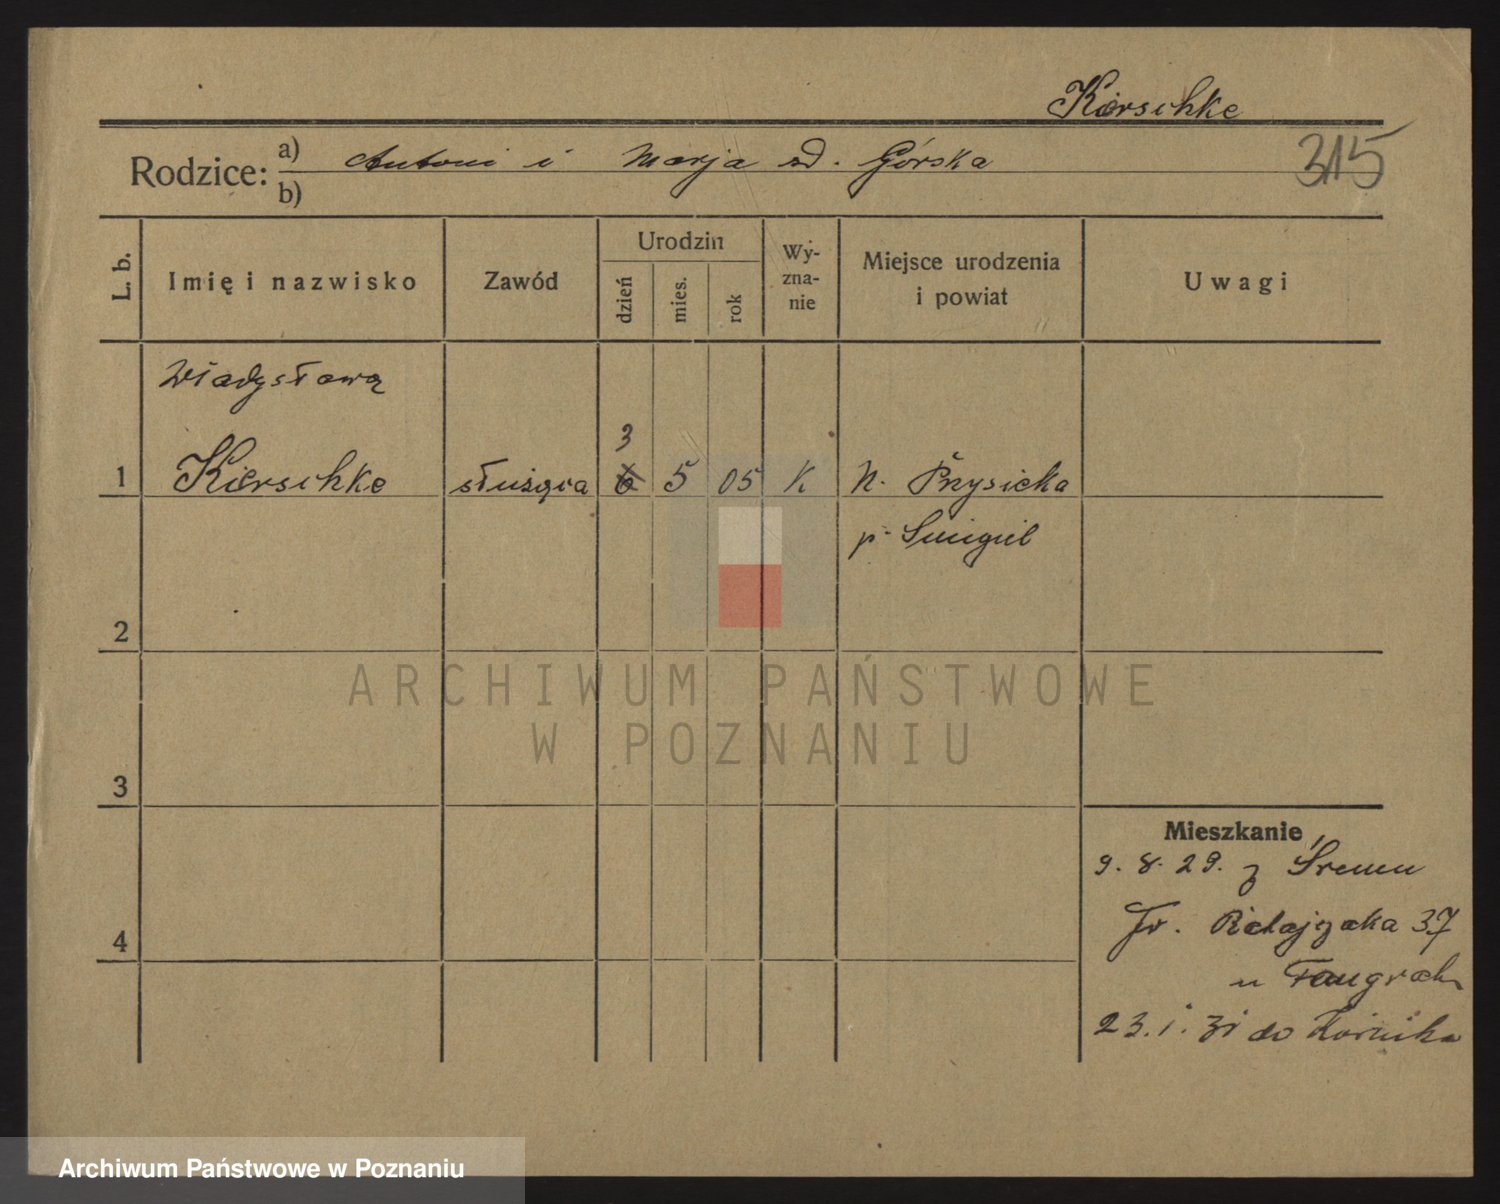 Kierschke
Rodzice: a) Antoni i Marja zd. Górska
b)
315
L. b.
Imię i nazwisko
Zawód
Urodzin
dzień
mies.
rok
Wy-
zna-
nie
Miejsce urodzenia
i powiat
Uwagi
Władysława
3
1 Kierschke służąca 6 5 05 K N. Przysieka
p. Śmigiel
2
3
4
Mieszkanie
9. 8. 29. z Śremu
Fr. Ratajczaka 37
u
23. 1. 31 do Kórnika
ARCHIWUM PAŃSTWOWE
W POZNANIU
Archiwum Państwowe w Poznaniu